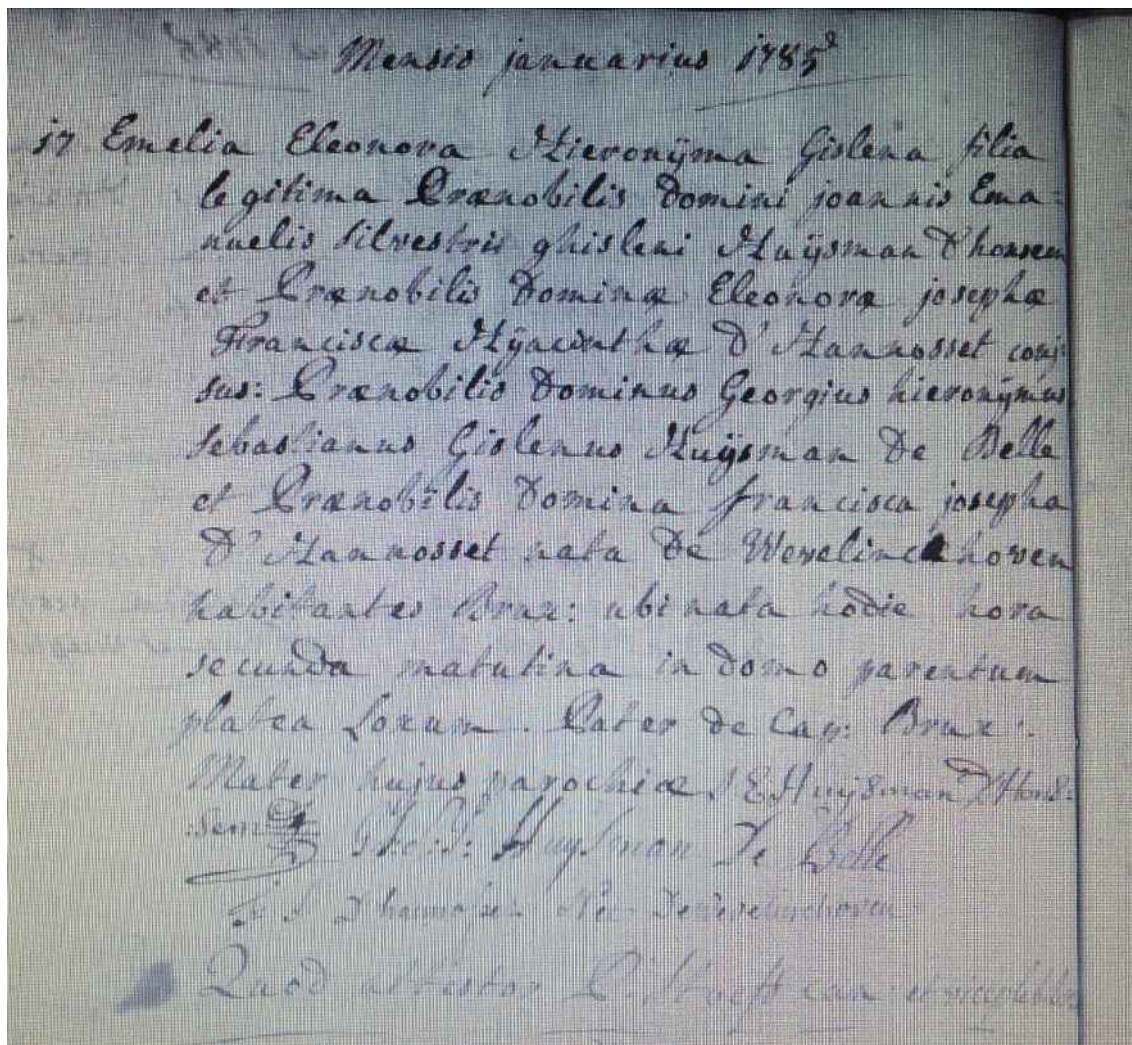 Mensis januarius 1785
17 Emelia Eleonora Hieronÿma Gislena filia
legitima Prænobilis Domini joannis Ema:
nuelis silvestris ghisleni Huÿsman D'honsem
et Prænobilis Dominæ Eleonoræ josephæ
Franciscæ Hÿacinthæ D'Hannosset conj:
sus: Prænobilis Dominus Georgius hieronÿmus
sebastianus Gislenus Huÿsman De Belle
et Prænobilis Domina francisca josepha
D'Hannosset nata De Wevelinckhoven
habitantes Brux: ubi nata hodie hora
secunda matutina in domo parentum
platea Loxum. Pater de Cap: Brux:
Mater hujus parochiæ J E Huÿsman D'Hons:
:sem
Huysman De Belle
Quod attestor